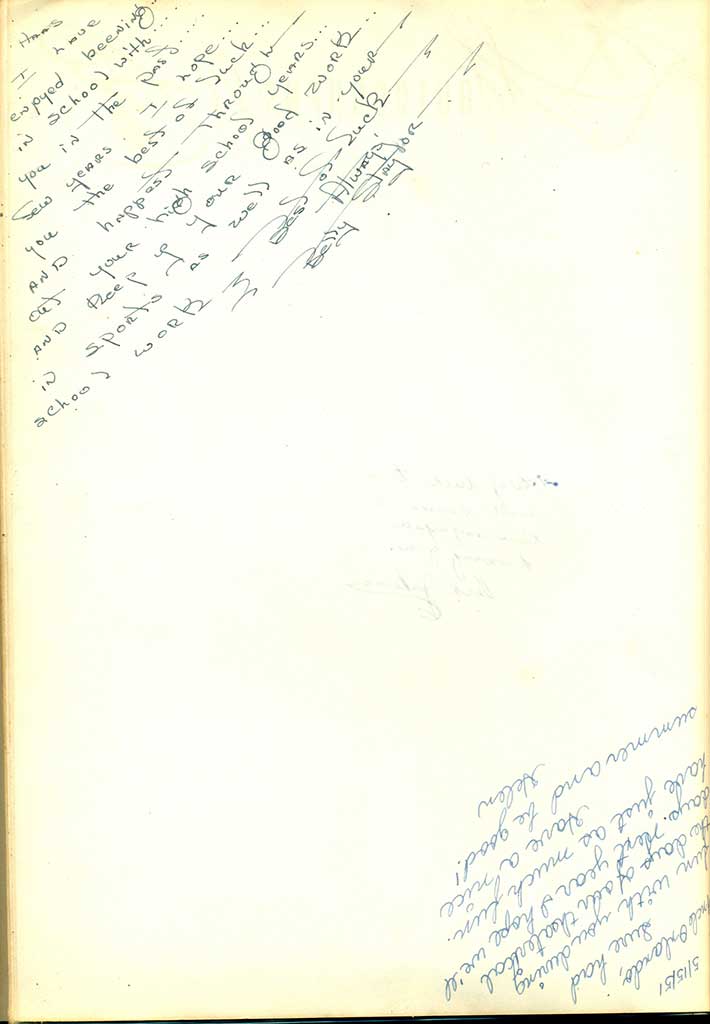 Hans
I have
enjoyed beening...
in school with...
you in the past...
few years. I hope...
you the best of luck...
AND happass through
out your high school years...
AND keep up your good work
in sports as well as in your
school work
Best of luck
Always,
Betty
5/15/51
Uncle Orlando,
Sure had
fun with you during
the days of our theaterical
days. Next year I hope we'll
have just as much fun.
Have a nice
summer and be good!
Helen